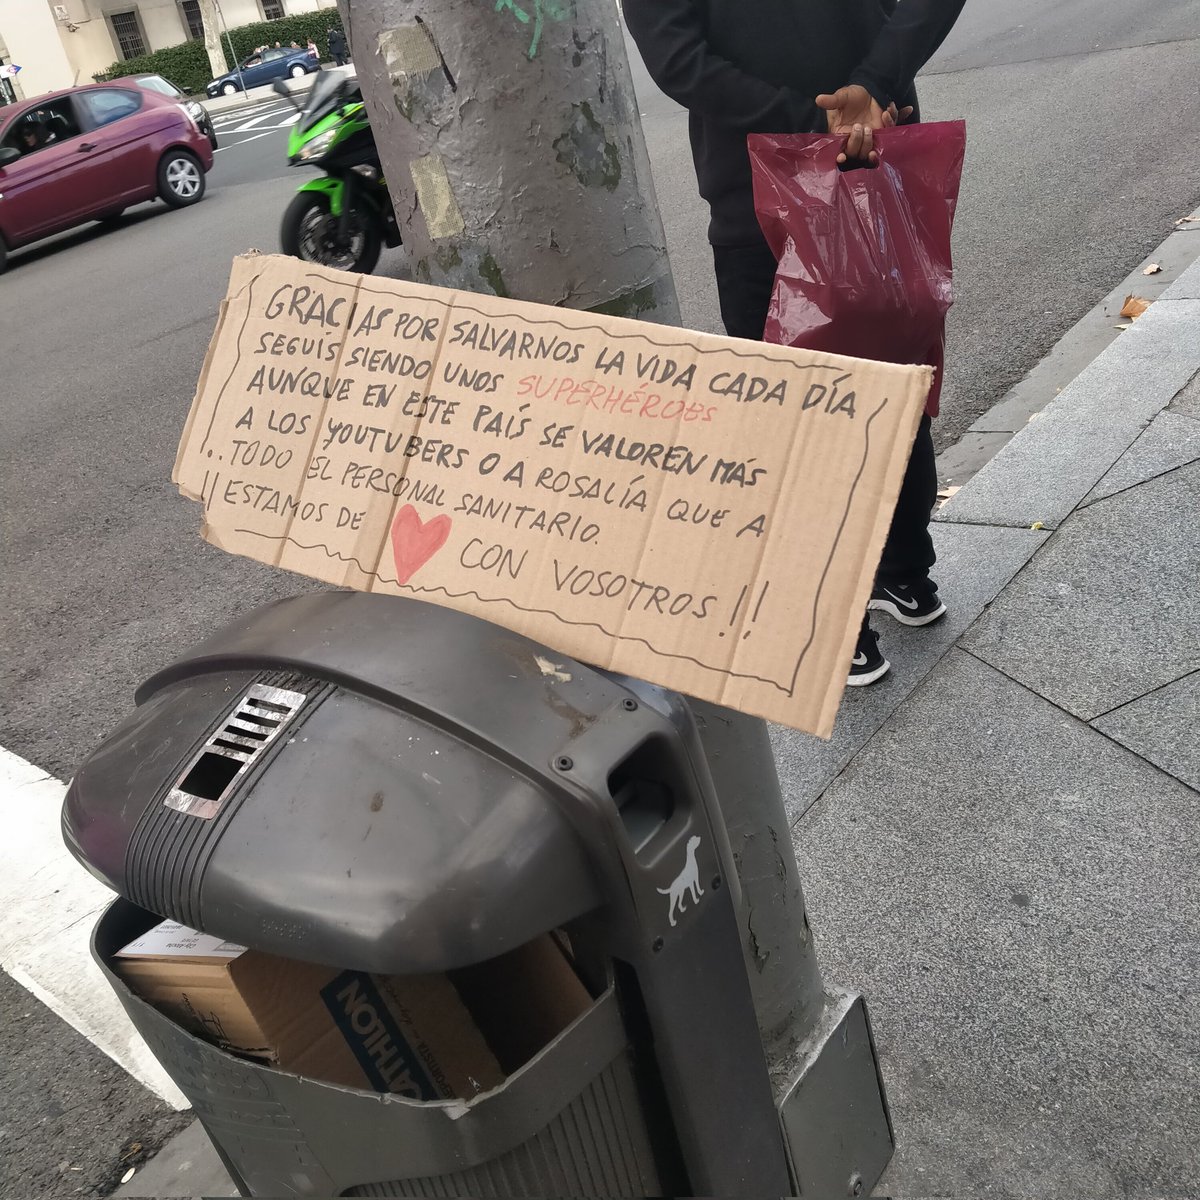 GRACIAS POR SALVARNOS LA VIDA CADA DÍA
SEGUÍS SIENDO UNOS SUPERHÉROES
AUNQUE EN ESTE PAÍS SE VALOREN MÁS
A LOS YOUTUBERS O A ROSALÍA QUE A
TODO EL PERSONAL SANITARIO.
¡¡ESTAMOS DE CON VOSOTROS!!
CATHLON